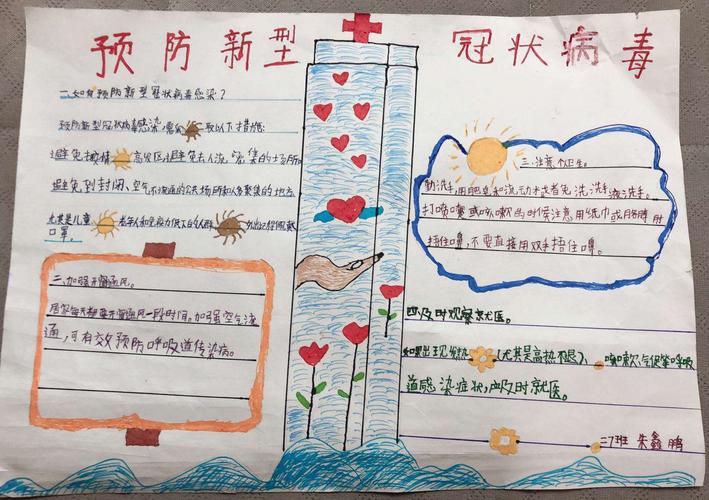 预防新型 冠状病毒
一.如何预防新型冠状病毒感染?
预防新型冠状病毒感染,需 取以下措施
避免去疫情 高发区,避免去人流 密集的土场所
避免到封闭、空气不流通的公共场所和人多聚集的地方
尤其是儿童 老年人和免疫力低下的人群 外出
口罩。
二.加强开窗通风。
居家每天都要开窗通风一段时间,加强空气流
通,可有效预防呼吸道传染病。
三.注意个卫生。
勤洗手,用肥皂和流动水或者免洗洗手液洗手。
打喷嚏或咳嗽的时候注意用纸巾或胳膊肘
捂住嘴,不要直接用双手捂住口嘴。
四.及时观察就医。
如果出现发热 (尤其是高热不退)、 咳嗽、气促等呼吸
道感染症状,应及时就医。
二7班 朱鑫鹏